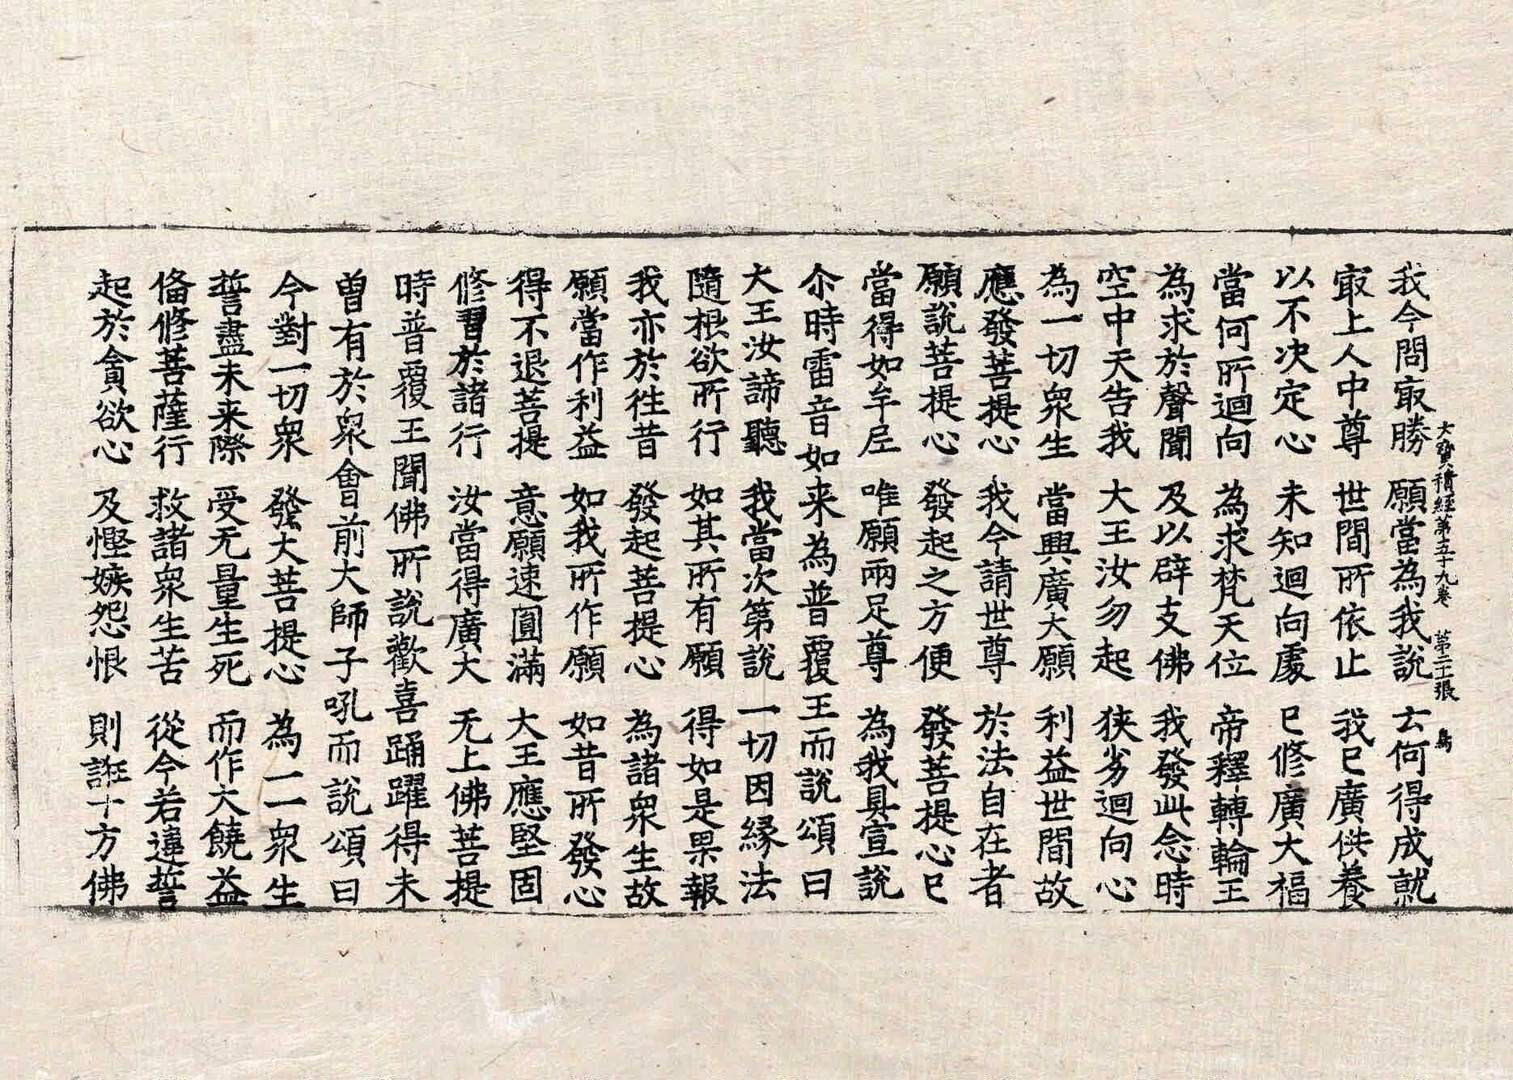 大寶積經第五十九卷 第二十張 鳥
我今問㝡勝 願當為我說 云何得成就
㝡上人中尊 世間所依止 我已廣供養
以不决定心 未知迴向處 已修廣大福
當何所迴向 為求梵天位 帝釋轉輪王
為求於聲聞 及以辟支佛 我發此念時
空中天告我 大王汝勿起 狹劣迴向心
為一切衆生 當興廣大願 利益世間故
應發菩提心 我今請世尊 於法自在者
願說菩提心 發起之方便 發菩提心已
當得如牟尼 唯願兩足尊 為我具宣說
尒時雷音如来為普覆王而說頌曰
大王汝諦聽 我當次第說 一切因緣法
隨根欲所行 如其所有願 得如是果報
我亦於往昔 發起菩提心 為諸衆生故
願當作利益 如我所作願 如昔所發心
得不退菩提 意願速圓滿 大王應堅固
修習於諸行 汝當得廣大 无上佛菩提
時普覆王聞佛所說歡喜踊躍得未
曾有於衆會前大師子吼而說頌曰
今對一切衆 發大菩提心 為一一衆生
誓盡未来際 受无量生死 而作大饒益
俻修菩薩行 救諸衆生苦 從今若違誓
起於貪欲心 及慳嫉怨恨 則誑十方佛